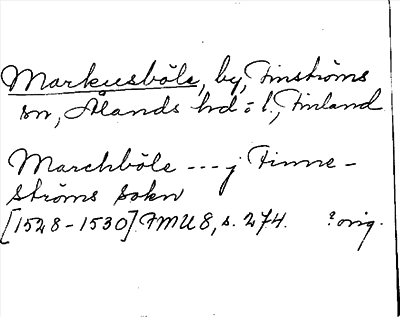 Markusböle, by, Finströms
sn, Ålands hd o l., Finland
Marchböle --- j Finne-
ströms sokn
[1528-1530] FMU 8, s. 274. ? orig.